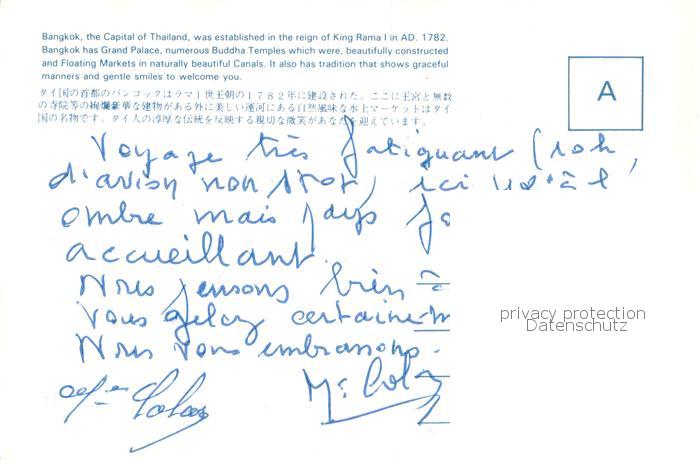 Bangkok, the Capital of Thailand, was established in the reign of King Rama I in AD. 1782.
Bangkok has Grand Palace, numerous Buddha Temples which were, beautifully constructed
and Floating Markets in naturally beautiful Canals. It also has tradition that shows graceful
manners and gentle smiles to welcome you.
タイ国の首都のバンコックはラマ1世王朝の1782年に建設された。ここに王宮と無数
の寺院等の絢爛豪華な建物がある外に美しい運河にある自然風味な水上マーケットはタイ
国の名物です。タイ人の淳厚な伝統を反映する親切な微笑があなたを迎えています。
A
Voyage très fatiguant (10h
d'avion non stop) ici à l'
ombre mais pays
accueillant.
Nous pensons bien à
Vous gelez certainem
Nous vous embrassons.
privacy protection
Datenschutz